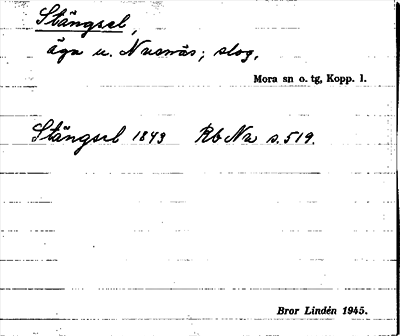 Stängsel,
äga u. Nusnäs; slog.
Mora sn o. tg, Kopp. l.
Stängsel 1843 Rb Na s. 519.
Bror Lindén 1945.